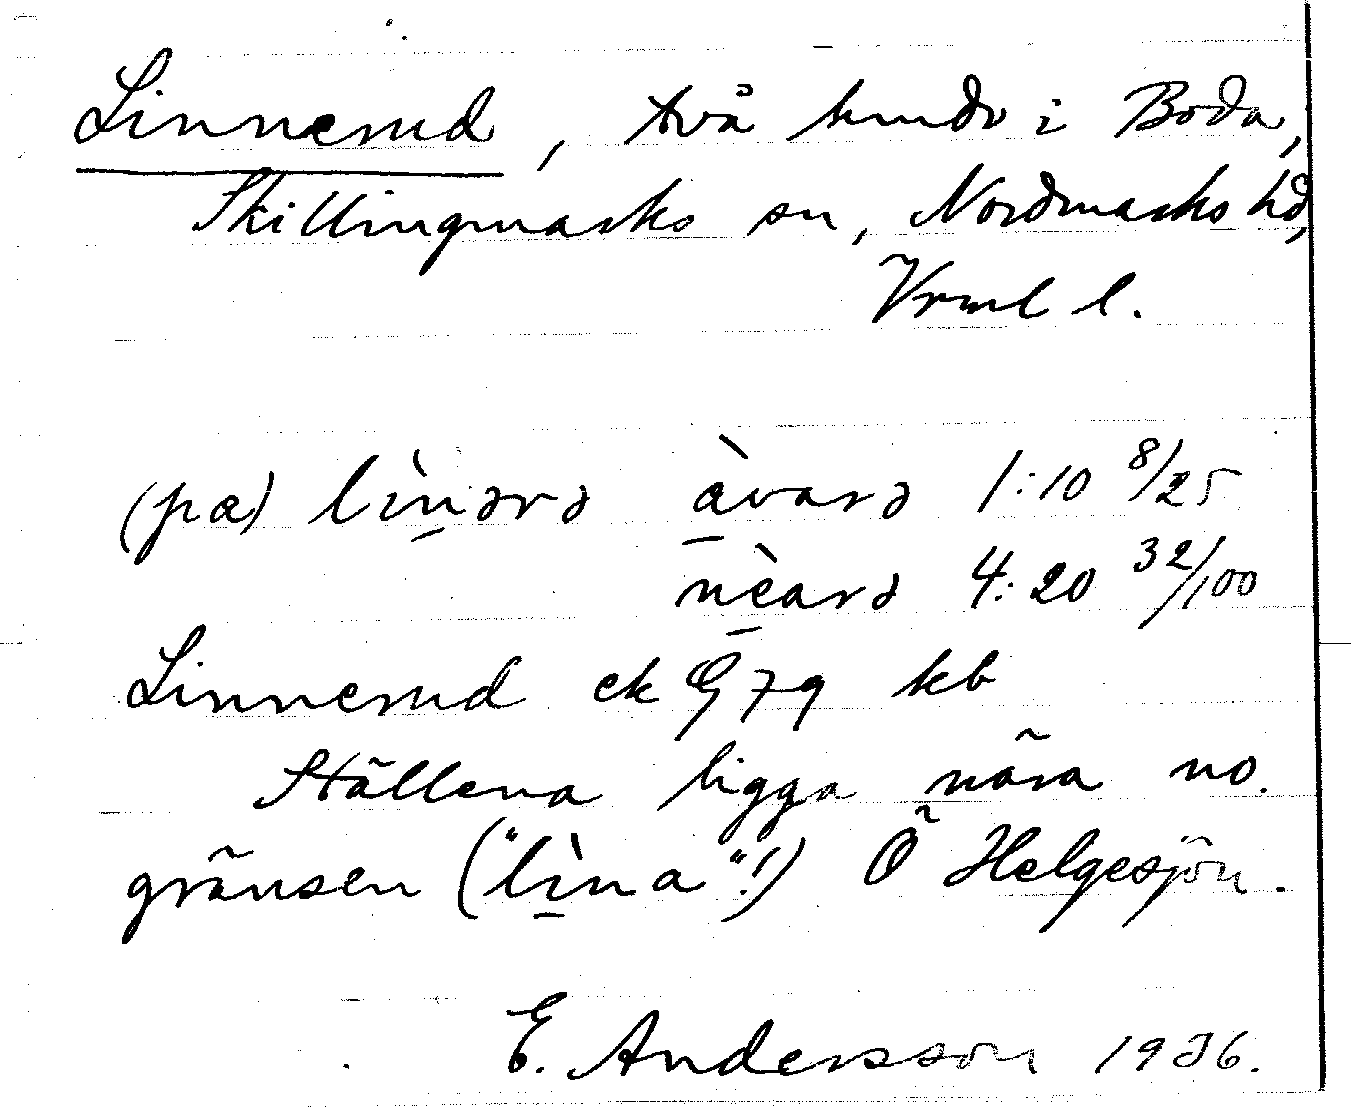 Linnerud, två hmdr i Boda,
Skillingmarks sn, Nordmarks hd,
Vrml l.
(pa) lìnərə àvarə 1:10 8/25
nèarə 4:20 32/100
Linnerud ek G 79 kb
Ställena ligga nära no.
gränsen ("lìna"!) Ö Helgesjön.
E. Andersson 1936.